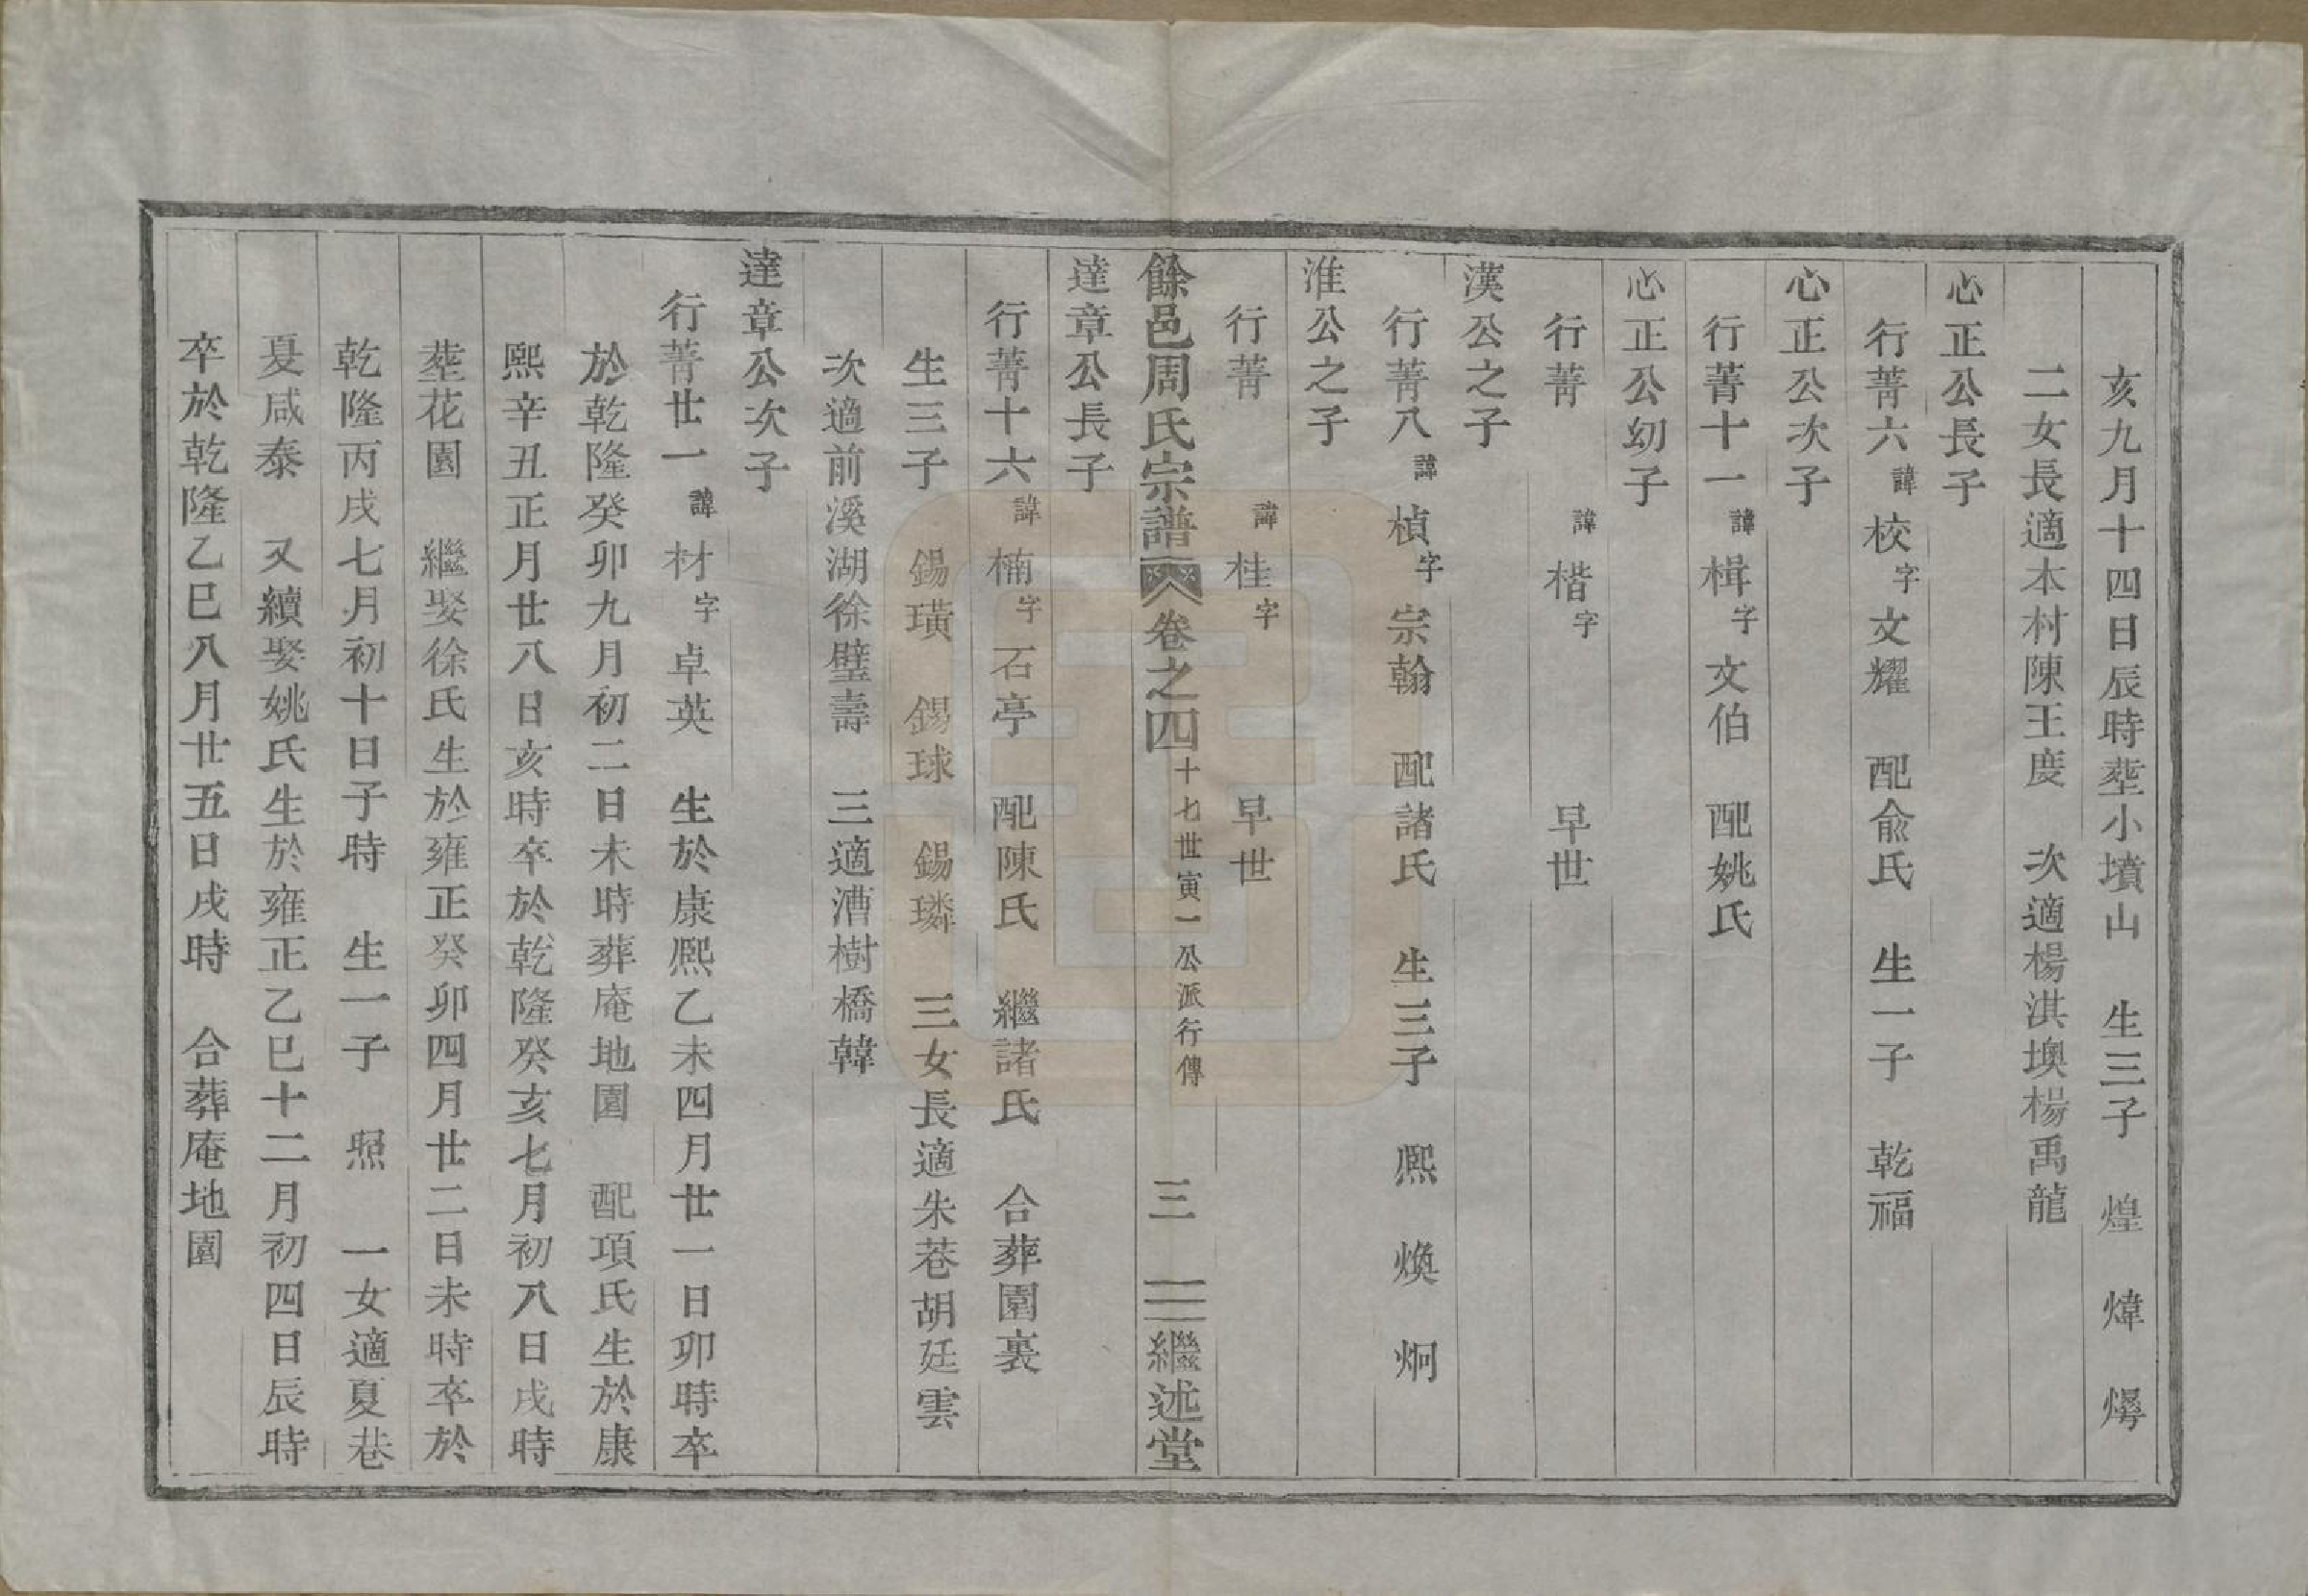 亥九月十四日辰時塟小墳山　生三子　煌　煒　燁
二女長適本村陳王度　次適楊淇墺楊禹龍
心正公長子
行菁六諱校字文耀　配俞氏　生一子　乾福
心正公次子
行菁十一諱楫字文伯　配姚氏
心正公幼子
行菁　諱楷字　早世
漢公之子
行菁八諱楨字宗翰　配諸氏　生三子　熈　煥　炯
淮公之子
行菁　諱桂字　早世
餘邑周氏宗譜　卷之四　十七世寅一公派行傳　三　繼述堂
達章公長子
行菁十六諱楠字石亭　配陳氏　繼諸氏　合葬園裏
生三子　錫璜　錫球　錫璘　三女長適朱巷胡廷雲
次適前溪湖徐璧壽　三適漕樹橋韓
達章公次子
行菁廿一諱材字卓英　生於康熈乙未四月廿一日卯時卒
於乾隆癸卯九月初二日未時葬庵地園　配項氏生於康
熙辛丑正月廿八日亥時卒於乾隆癸亥七月初八日戌時
塟花園　繼娶徐氏生於雍正癸卯四月廿二日未時卒於
乾隆丙戌七月初十日子時　生一子　照　一女適夏巷
夏咸泰　又續娶姚氏生於雍正乙巳十二月初四日辰時
卒於乾隆乙巳八月廿五日戌時　合葬庵地園